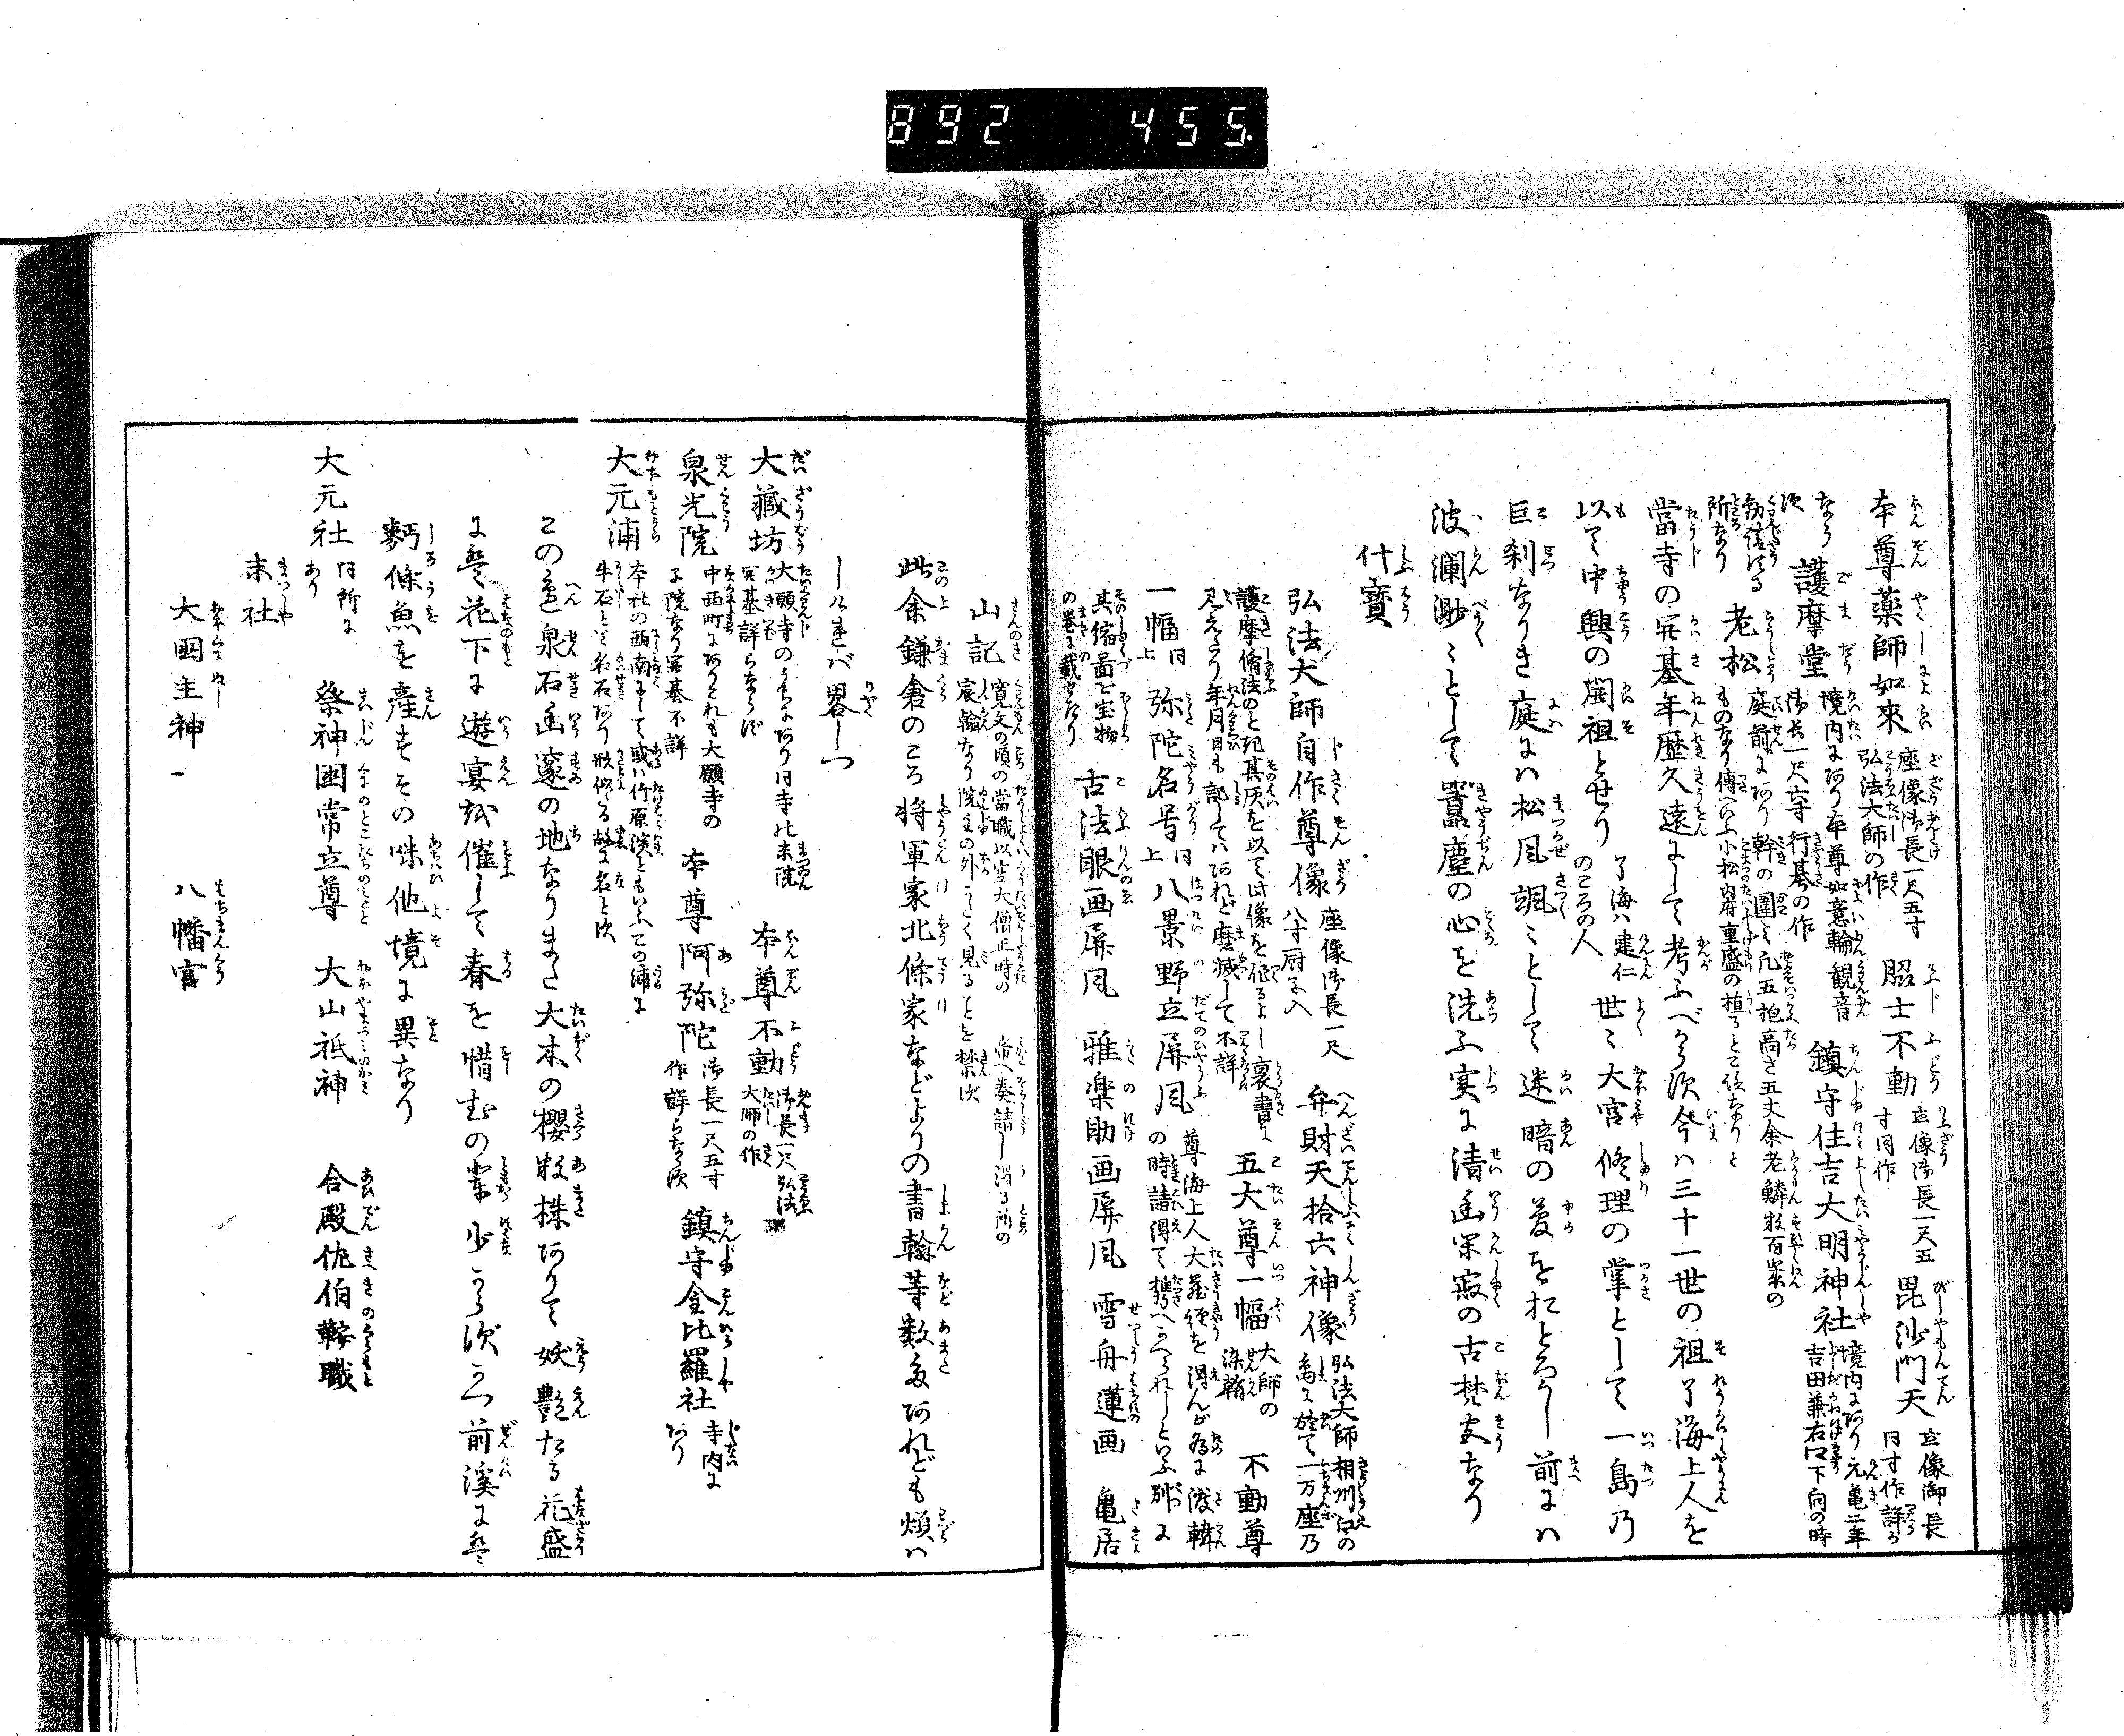 892 455.
本尊薬師如来 座像御長一尺五寸 弘法大師の作 脇士不動 立像御長一尺五寸同作 毘沙門天 立像御長同寸作詳な
ならず 護摩堂 境内にあり本尊如意輪観音 御長一尺六寸行基の作 鎮守住吉大明神社 境内にあり元亀二年 吉田兼右以下向の時
勧請する所なり 老松 庭前にあり幹の圍三尺五抱高さ五丈余老鱗数百歳の ものなり傳へいふ小松内府重盛の植るとて伝なりと
當寺の開基年歴久遠にして考ふべからず今ハ三十一世の祖了海上人を
以て中興の開祖とせり 了海ハ建仁のころの人 世ゝ大宮修理の掌として一島乃
巨刹なりき庭にハ松風颯ゝとして迷暗の夢をおとろかし前にハ
波瀾渺ゝとして囂塵の心を洗ふ実に清幽閑寂の古梵宮なり
什寶
弘法大師自作尊像 座像御長一尺八寸厨子入 弁財天拾六神像 弘法大師相州江の島に於て一万座乃
護摩脩法のと記其灰を以て此像を作るよし裏書に見えたり年月日も記してハあれど磨滅して不詳 五大尊一幅 大師の染翰 不動尊
一幅 同上 弥陀名号 同上 八景野立屏風 尊海上人大蔵経を得んが為に渡韓の時請得て携へかへられしといふ別に
其縮畫を宝物の巻に載せたり 古法眼画屏風 雅楽助画屏風 雪舟蓮画 亀居
山記 寛文の頃の當職以空大僧正時の宸翰なり院主の外かたく見ることを禁ず 帝へ奏請し得る所の
此余鎌倉のころ将軍家北條家などよりの書翰等数多あれども煩ハ
しけれバ畧しつ
大蔵坊 大願寺のうちにあり同寺の末院 開基詳らならず 本尊不動 御長一尺弘法大師の作
泉光院 中西町にありこれも大願寺の子院なり開基不詳 本尊阿弥陀 御長一尺五寸作詳らならず 鎮守金比羅社 寺内にあり
大元浦 本社の西南にして或ハ竹原浜ともいふこの浦に牛石といふ名石あり形似る故に名とす
この邉泉石幽邃の地なりまた大木の櫻数株ありて妖艶たる花盛
にハ花下に遊宴を催して春を惜むの輩少からずかつ前溪にハ
麪條魚を産すその味他境に異なり
大元社 同所にあり 祭神国常立尊 大山祇神 合殿佐伯鞍職
末社
大国主神一 八幡宮